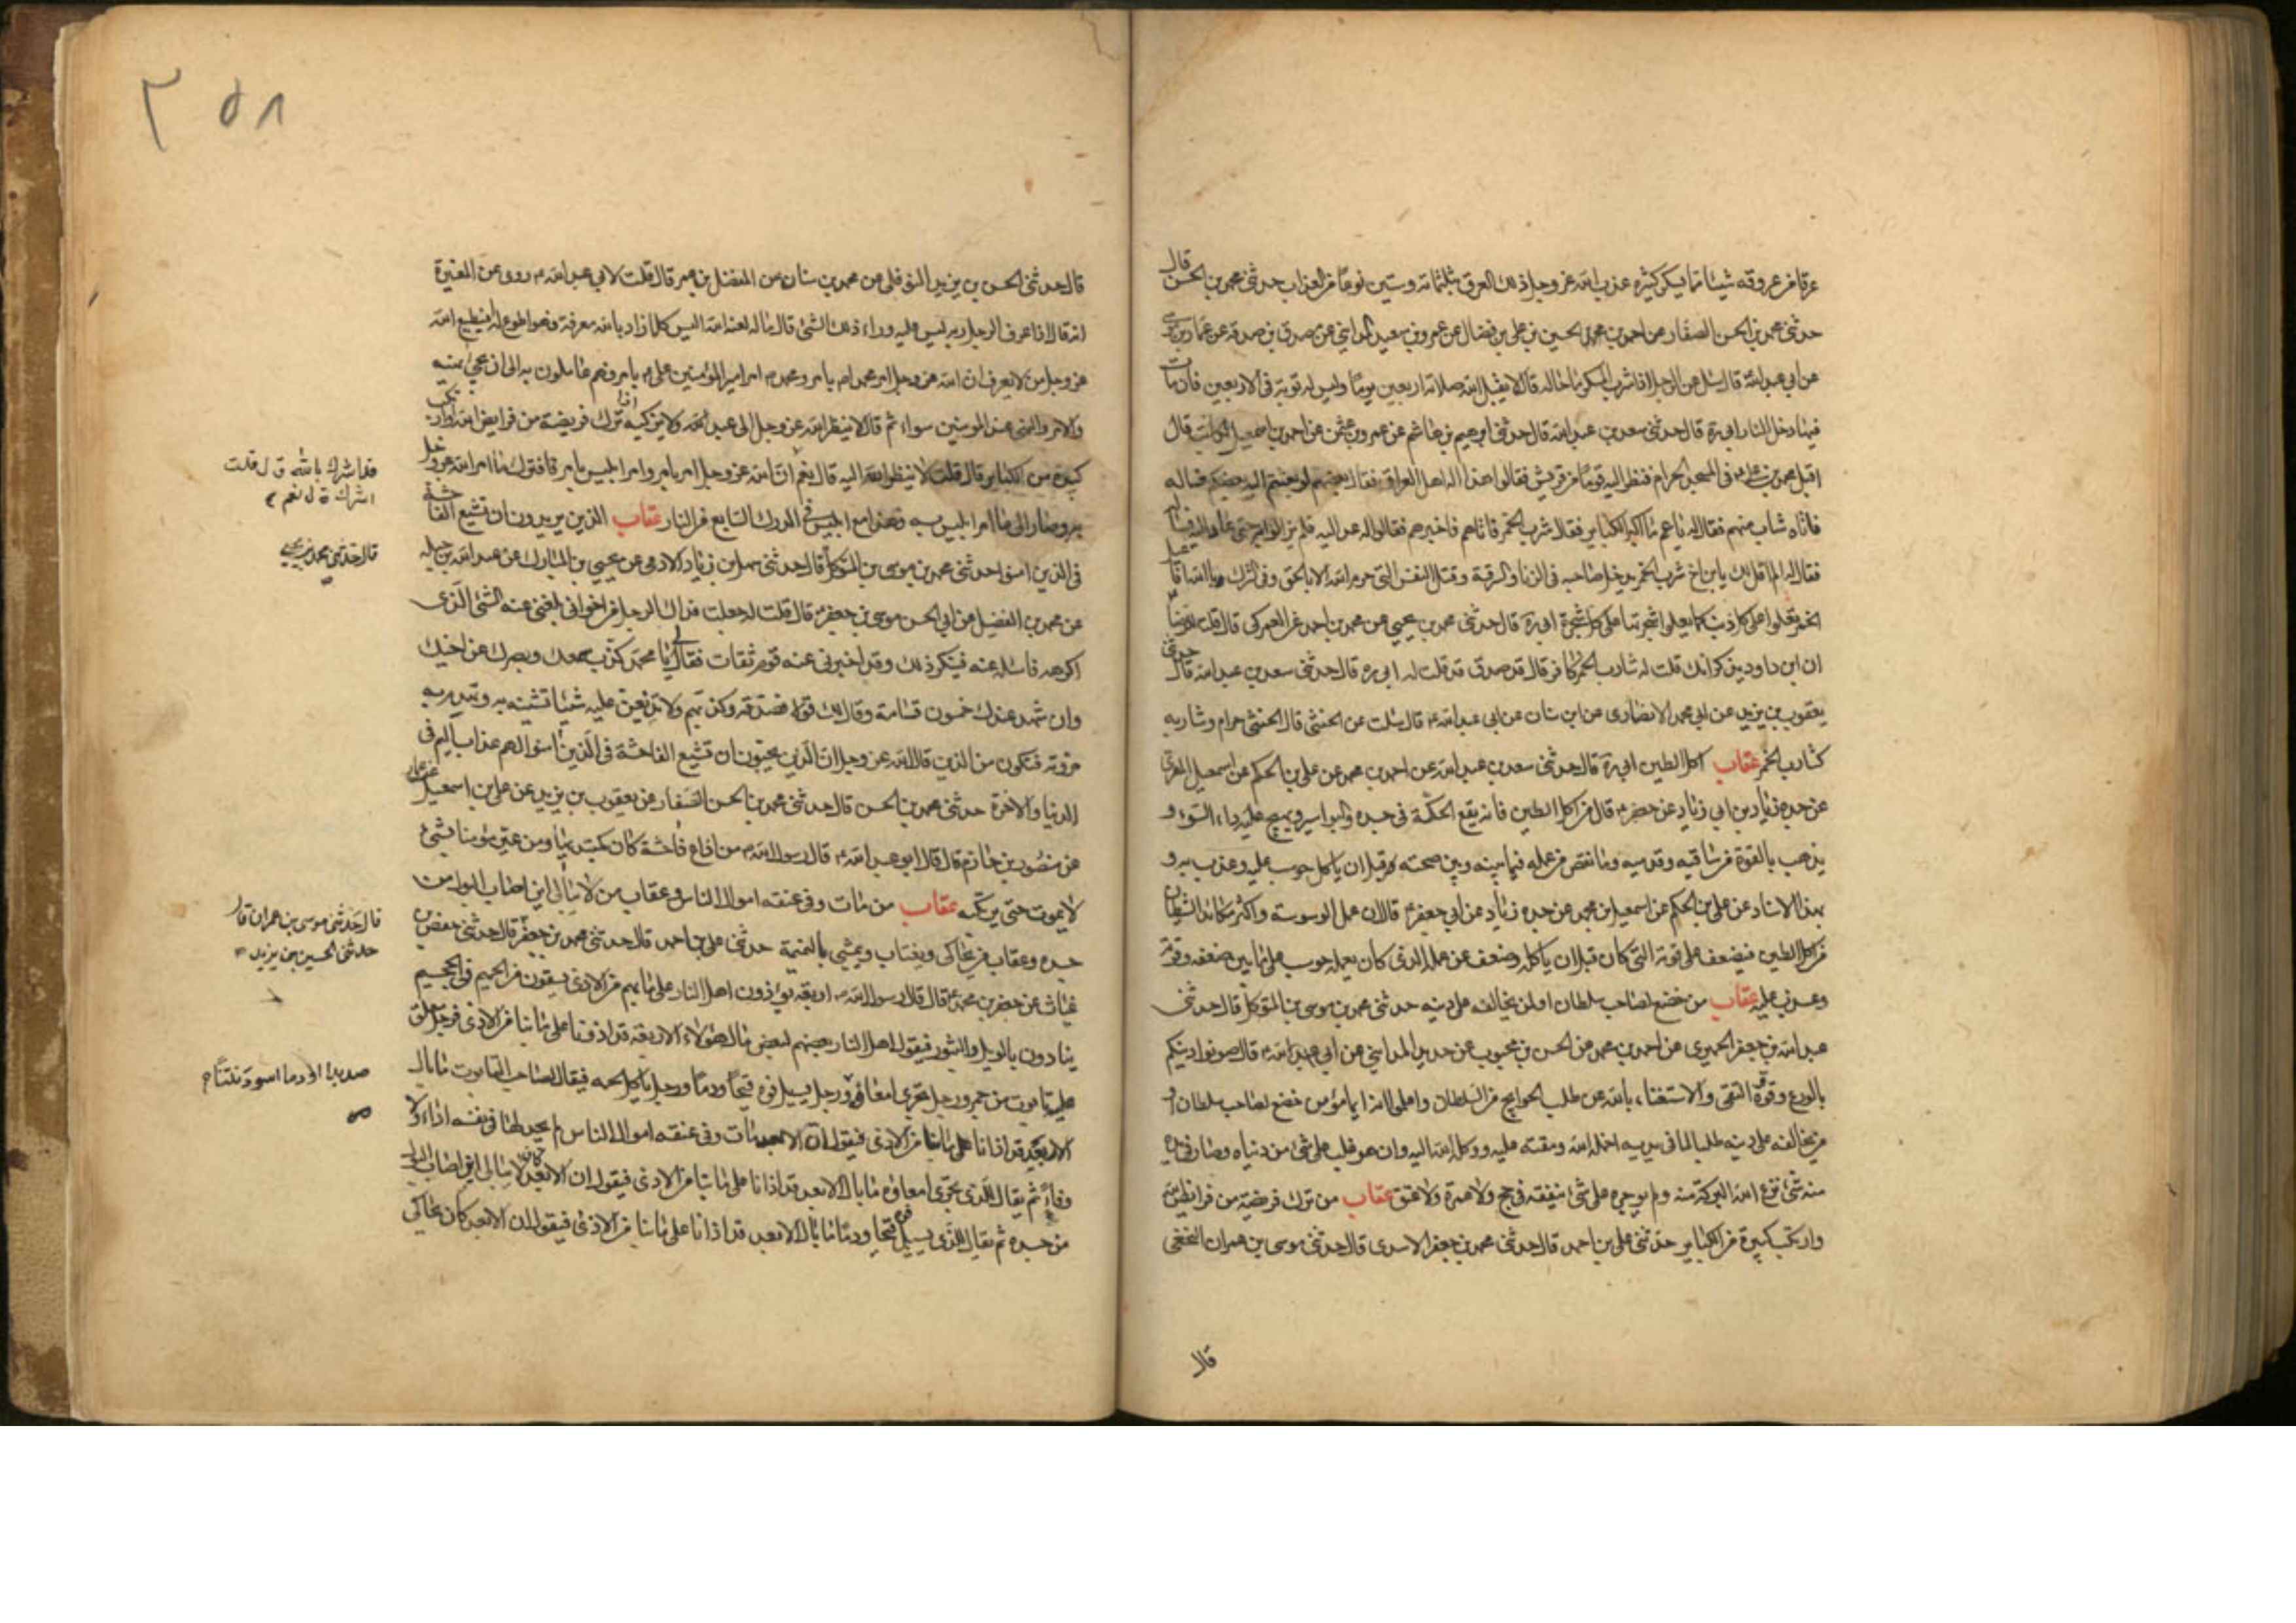 عرقا من عروقه شيئا مما يسكر كثيره عذب الله عز وجل ذلك العرق بثلثمائة وستين نوعا من العذاب حدثني محمد بن الحسن قال
حدثني محمد بن الحسن الصفار عن احمد بن محمد الحسين بن علي بن فضال عن عمرو بن سعيد المدايني عن مصدق بن صدقه عن عمار بن موسى
عن ابي عبد الله قال سئل عن الرجل اذا شرب المسكر ما حاله قال لا يقبل الله صلاته اربعين يوما وليس له توبة في الاربعين فان مات
فيها دخل النار ابي ره قال حدثني سعد بن عبد الله قال حدثني ابرهيم بن هاشم عن عمرو بن عثمن عن احمد بن اسمعيل الكاتب قال
اقبل محمد بن علي في المسجد الحرام فنظر اليه قوما من قريش فقالوا هذا اله اهل العراق فقال بعضهم لو بعثتم اليه بعضكم فساله
فاتاه شاب منهم فقال له يا عم ما اكبر الكباير فقال شرب الخمر فاتاهم فاخبرهم فقالوا له عد اليه فلم يزالوا به حتى عاد اليه فساله
فقال له الم اقل لك يا بن اخ شرب الخمر يدخل صاحبه في الزنا والسرقة وقتل النفس التي حرم الله الا بالحق وفي الشرك بالله
الخمر تعلوا على كل ذنب كما يعلوا شجرتها على كل شجرة ابي ره قال حدثني محمد بن يحيى عن محمد بن احمد عن العمركي قال قلت للرضا
ان ابن داود يذكر انك قلت له شارب الخمر كافر قال قد صدق قد قلت له ابي ره قال حدثني سعد بن عبد الله قال حدثني
يعقوب بن يزيد عن ابي محمد الانصاري عن ابن سنان عن ابي عبد الله قال سئلت عن الخنثى قال الخنثى حرام وشاربه
كشارب الخمر عقاب اكل الطين ابي ره قال حدثني سعد بن عبد الله عن احمد بن محمد عن علي بن الحكم عن اسمعيل المنقري
عن جده زياد بن ابي زياد عن جعفر قال من اكل الطين فانه يقع الحكة في جسده والبواسير ويهيج عليه داء السوء و
يذهب بالقوة من ساقيه وقدميه وما نقص من عمله فيما بينه وبين صحته قبل ان ياكل حوسب عليه وعذب به و
بهذا الاسناد عن علي بن الحكم عن اسمعيل بن محمد عن جده زياد عن ابي جعفر قال ان عمل الوسوسة واكثر مكائد الشيطان
من اكل الطين فيضعف على قوته التي كان قبل ان ياكله وضعف عن عمله الذي كان يعمله حوسب على ما بين ضعفه وقوته
وعذب عليه عقاب من خضع لصاحب سلطان او لمن يخالفه على دينه حدثني محمد بن موسى بن المتوكل قال حدثني
عبد الله بن جعفر الحميري عن احمد بن محمد عن الحسن بن محبوب عن حديد المدايني عن ابي عبد الله قال صونوا دينكم
بالورع وقوة التقى والاستغناء بالله عن طلب الحوايج من السلطان واعلموا انه ايما مؤمن خضع لصاحب سلطان او
من يخالفه على دينه طلبا لما في يديه اخمله الله ومقته عليه ووكله الله اليه وان هو غلب على شئ من دنياه وصار في يده
منه شئ نزع الله البركة منه ولم يوجره على شئ ينفقه في حج ولا عمرة ولا عتق عقاب من ترك فريضة من فرايض الله
وارتكب كبيرة من الكباير حدثني علي بن احمد قال حدثني محمد بن جعفر الاسدي قال حدثني موسى بن عمران النخعي
قال
٣٥٨
قال حدثني الحسين بن يزيد النوفلي عن محمد بن سنان عن المفضل بن عمر قال قلت لابي عبد الله روى عن المغيرة
انه قال اذا عرف الرجل ربه ليس عليه وراء ذلك الشئ قال ما له لعنه الله اليس كلما زاد بالله معرفة فهو اطوع له افيطيع الله
عز وجل من لا يعرف ان الله عز وجل امر محمدا بامر ومحمد امر امير المؤمنين علي بامر فهم عاملون به الى ان يجئ نهيه
والامر والنهي عند المؤمنين سواء ثم قال لا ينظر الله عز وجل الى عبد ولا يزكيه اذا ترك فريضة من فرايض الله او ارتكب
كبيرة من الكباير قال قلت لا ينظر الله اليه قال نعم ان الله عز وجل امر بامر وامر ابليس بامر فافتوك ما امر الله عز وجل
به وصار الى ما امر ابليس به فهذا مع ابليس في الدرك السابع من النار عقاب الذين يريدون ان تشيع الفاحشة
في الذين امنوا حدثني محمد بن موسى بن المتوكل قال حدثني سهل بن زياد الادمي عن يحيى بن المبارك عن عبد الله بن جبله
عن محمد بن الفضيل عن ابي الحسن موسى بن جعفر قال قلت له جعلت فداك الرجل من اخواني بلغني عنه الشئ الذي
اكرهه فاسئله عنه فينكر ذلك وقد اخبرني عنه قوم ثقات فقال لي يا محمد كذب سمعك وبصرك عن اخيك
وان شهد عندك خمسون قسامة وقال لك قولا فصدقه وكذبهم ولا تذيعن عليه شيئا تشينه به وتهدم به
مروته فتكون من الذين قال الله عز وجل ان الذين يحبون ان تشيع الفاحشة في الذين امنوا لهم عذاب اليم في
الدنيا والاخرة حدثني محمد بن الحسن قال حدثني محمد بن الحسن الصفار عن يعقوب بن يزيد عن علي بن اسمعيل عن عمار
عن منصور بن حازم قال قال ابو عبد الله قال رسول الله من اذاع فاحشة كان كمبتديها ومن عير مؤمنا بشئ
لا يموت حتى يرتكبه عقاب من مات وفي عنقه اموال الناس وعقاب من لا يبالي اين اصاب البول من
جسده وعقاب من يحاكي ويغتاب ويمشي بالنميمة حدثني علي بن احمد قال حدثني محمد بن جعفر قال حدثني حفص بن
غياث عن جعفر بن محمد قال قال رسول الله اربعة يؤذون اهل النار على ما بهم من الاذى يسقون من الحميم في الجحيم
ينادون بالويل والثبور فيقول اهل النار بعضهم لبعض ما لهؤلاء الاربعة قد اذونا على ما بنا من الاذى فرجل معلق
عليه تابوت من جمر ورجل تجري امعاؤه ورجل يسيل فوه قيحا ودما ورجل ياكل لحمه فيقال لصاحب التابوت ما بال
الابعد قد اذانا على ما بنا من الاذى فيقول ان الابعد مات وفي عنقه اموال الناس لم يجد لها في نفسه اداء ولا
وفاء ثم يقال للذي تجري امعاؤه ما بال الابعد قد اذانا على ما بنا من الاذى فيقول ان الابعد كان لا يبالي اين اصاب البول
من جسده ثم يقال للذي يسيل فوه قيحا ودما ما بال الابعد قد اذانا على ما بنا من الاذى فيقول ان الابعد كان يحاكي
فقد اشرك بالله قال قلت
اشرك قال نعم
قال حدثني محمد بن يحيى
قال حدثني موسى بن عمران قال
حدثني الحسين بن يزيد